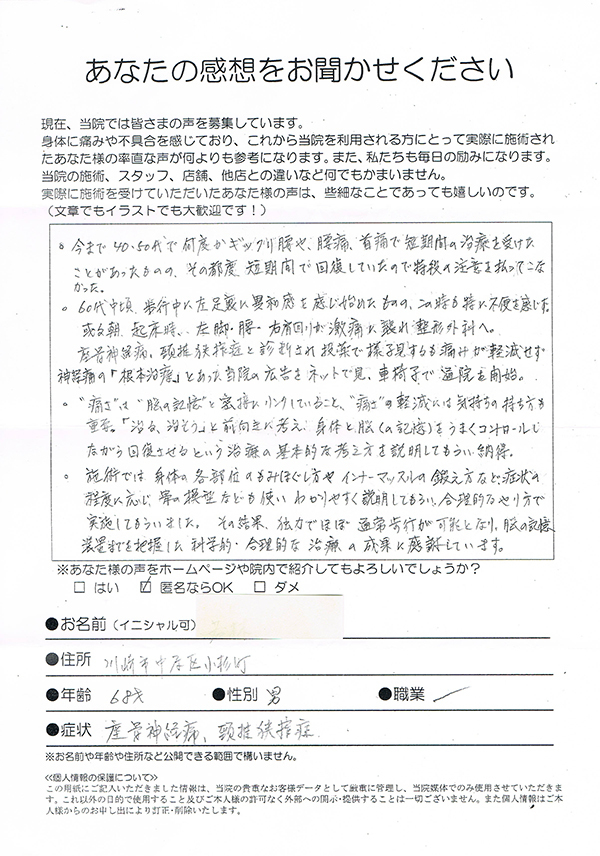 あなたの感想をお聞かせください
現在、当院では皆さまの声を募集しています。
身体に痛みや不具合を感じており、これから当院を利用される方にとって実際に施術され
たあなた様の率直な声が何よりも参考になります。また、私たちも毎日の励みになります。
当院の施術、スタッフ、店舗、他店との違いなど何でもかまいません。
実際に施術を受けていただいたあなた様の声は、些細なことであっても嬉しいのです。
(文章でもイラストでも大歓迎です!)
。今まで40・50代で何度かギックリ腰や、腰痛、首痛で短期間の治療を受けた
ことがあったものの、その都度短期間で回復していたので特段の注意を払ってこな
かった。
。60代中頃、歩行中に左足裏に異和感を感じ始めたものの、この時も特に不便を感じず。
或る朝、起床時、左脚・腰・右肩回りが激痛に襲れ整形外科へ。
座骨神経痛、頸椎狭搾症と診断され投薬で様子見するも痛みが軽減せず
神経痛の「根本治療」とあった当院の広告をネットで見、車椅子で通院を開始。
。"痛さ"は"脳の記憶"と密接にリンクしていること、"痛さ"の軽減には気持ちの持ち方も
重要。「治る、治そう」と前向きに考え、身体と脳(の記憶)をうまくコントロールし
ながら回復させるという治療の基本的な考え方を説明してもらい納得。
。施術では身体の各部位のもみほぐし方やインナーマッスルの鍛え方など、症状の
程度に応じ、骨の模型なども使いわかりやすく説明してもらい、合理的なやり方で
実施してもらいました。その結果、独力でほぼ通常歩行が可能となり、脳の記憶
装置までを把握した科学的・合理的な治療の成果に感謝しています。
※あなた様の声をホームページや院内で紹介してもよろしいでしょうか?
□ はい ☑ 匿名ならOK □ ダメ
●お名前(イニシャル可)
●住所 川崎市中原区小杉町
●年齢 68才 ●性別 男 ●職業
●症状 座骨神経痛、頸椎狭搾症
※お名前や年齢や住所など公開できる範囲で構いません。
<<個人情報の保護について>>
この用紙にご記入いただきました情報は、当院の貴重なお客様データとして厳重に管理し、当院媒体でのみ使用させていただきま
す。これ以外の目的で使用すること及びご本人様の許可なく外部への開示・提供することは一切ございません。また個人情報はご本
人様からのお申し出により訂正・削除いたします。